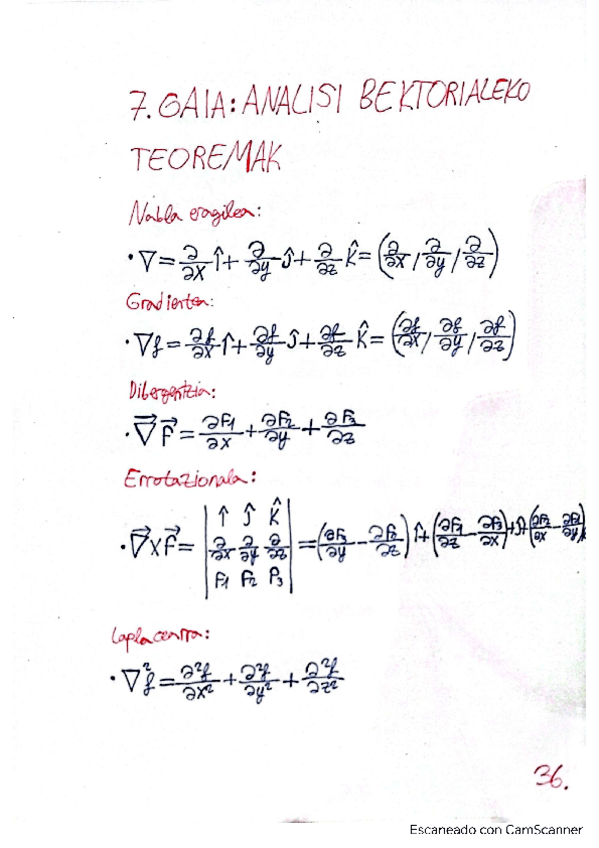 7. GAIA: ANALISI BEKTORIALEKO
TEOREMAK
Nabla eragilea:
• ∇ = ∂/∂x î + ∂/∂y ĵ + ∂/∂z k̂ = (∂/∂x, ∂/∂y, ∂/∂z)
Gradientea:
• ∇f = ∂f/∂x î + ∂f/∂y ĵ + ∂f/∂z k̂ = (∂f/∂x, ∂f/∂y, ∂f/∂z)
Dibergentzia:
• ∇⃗ F⃗ = ∂F₁/∂x + ∂F₂/∂y + ∂F₃/∂z
Errotazionala:
• ∇⃗ x F⃗ = | î ĵ k̂ | ∂/∂x ∂/∂y ∂/∂z | F₁ F₂ F₃ | = (∂F₃/∂y − ∂F₂/∂z) î + (∂F₁/∂z − ∂F₃/∂x) + ĵ + (∂F₂/∂x − ∂F₁/∂y)
Laplacearra:
• ∇²f = ∂²f/∂x² + ∂²f/∂y² + ∂²f/∂z²
36.
Escaneado con CamScanner